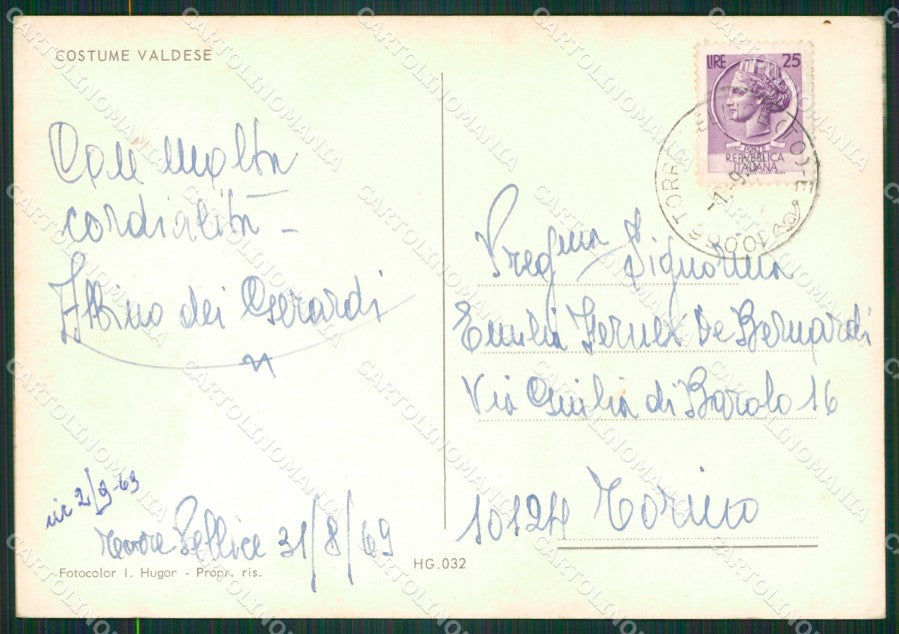 COSTUME VALDESE
Con molta
cordialità -
Albino dei Gerardi
ric 2/9-69
Torre Pellice 31/8/69
Fotocolor I. Hugor - Propr. ris.
HG.032
LIRE 25
REPVBBLICA
ITALIANA
TORRE
10066
Preg.ma Signorina
Emilia De Bernardi
Via Giulia di Barolo 16
10124 Torino
CARTOLINOMANIA